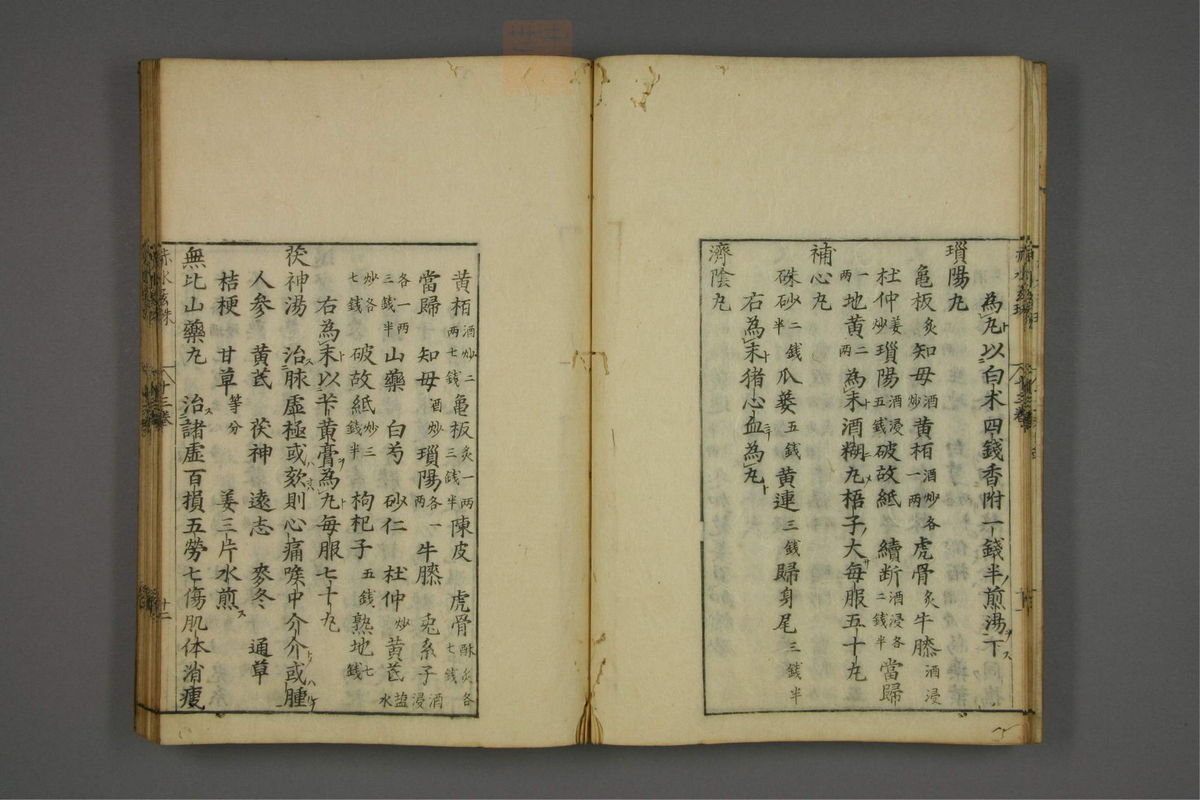 為丸以白朮四錢香附一錢半煎湯下
瑣陽丸
亀板炙知母酒炒黄栢酒炒各一两虎骨炙牛膝酒浸
杜仲姜炒瑣陽酒浸五錢破故紙 續断酒浸各二錢半當歸
一两地黄二两為末酒糊丸梧子大每服五十丸
補心丸
硃砂二錢半瓜蔞五錢黄連三錢歸身尾三錢半
右為末猪心血為丸
濟陰丸
黄栢酒炒二两七錢亀板炙一两三錢半陳皮 虎骨酥炙各七錢
當歸 知母酒炒瑣陽各一两牛膝 兎糸子酒浸
各一两三錢半山藥 白芍 砂仁 杜仲炒黄芪盐水
炒各七錢 破故紙炒三錢半 枸杞子五錢 熟地七錢
右為末以苄黄膏為丸每服七十丸
茯神湯 治脉虛極或欬則心痛喉中介介或腫
人参 黄芪 茯神 遠志 麥冬 通草
桔梗 甘草等分 姜三片水煎
無比山藥丸 治諸虛百損五勞七傷肌体消瘦
赤水玄珠
十三卷
十二